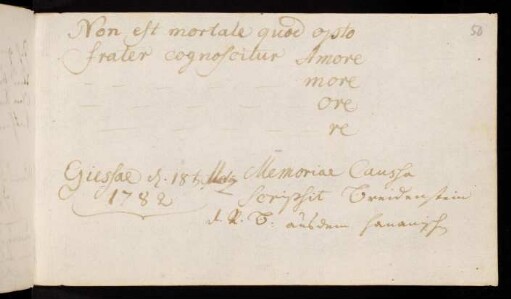 50
Non est mortale quod opto
frater cognoscitur Amore
— — — — more
— — — — ore
— — — — re
Giessae d. 18t. Merz Memoriae Caussa
1782 scripsit Breidenstein
d. R. B. aus dem Hanauisch